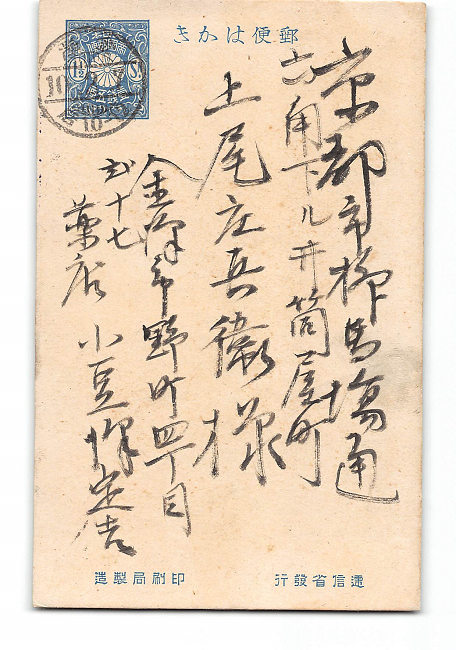 郵便はかき
1½
京都市柳馬場通
六角下ル井筒屋町
上尾庄兵衛様
金澤市野町四丁目
五十七
薬店 小豆澤定吉
遞信省發行
印刷局製造